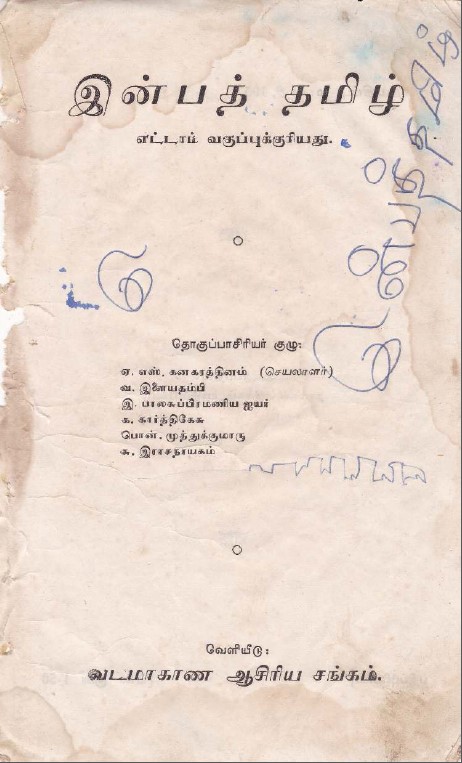 இன்பத் தமிழ்
எட்டாம் வகுப்புக்குரியது.
இன்பத் தமிழ்
இ
தொகுப்பாசிரியர் குழு:
ஏ. எஸ். கனகரத்தினம் (செயலாளர்)
வ. இளையதம்பி
இ. பாலசுப்பிரமணிய ஐயர்
க. கார்த்திகேசு
பொன். முத்துக்குமாரு
சு. இராசநாயகம்
வெளியீடு:
வடமாகாண ஆசிரிய சங்கம்.